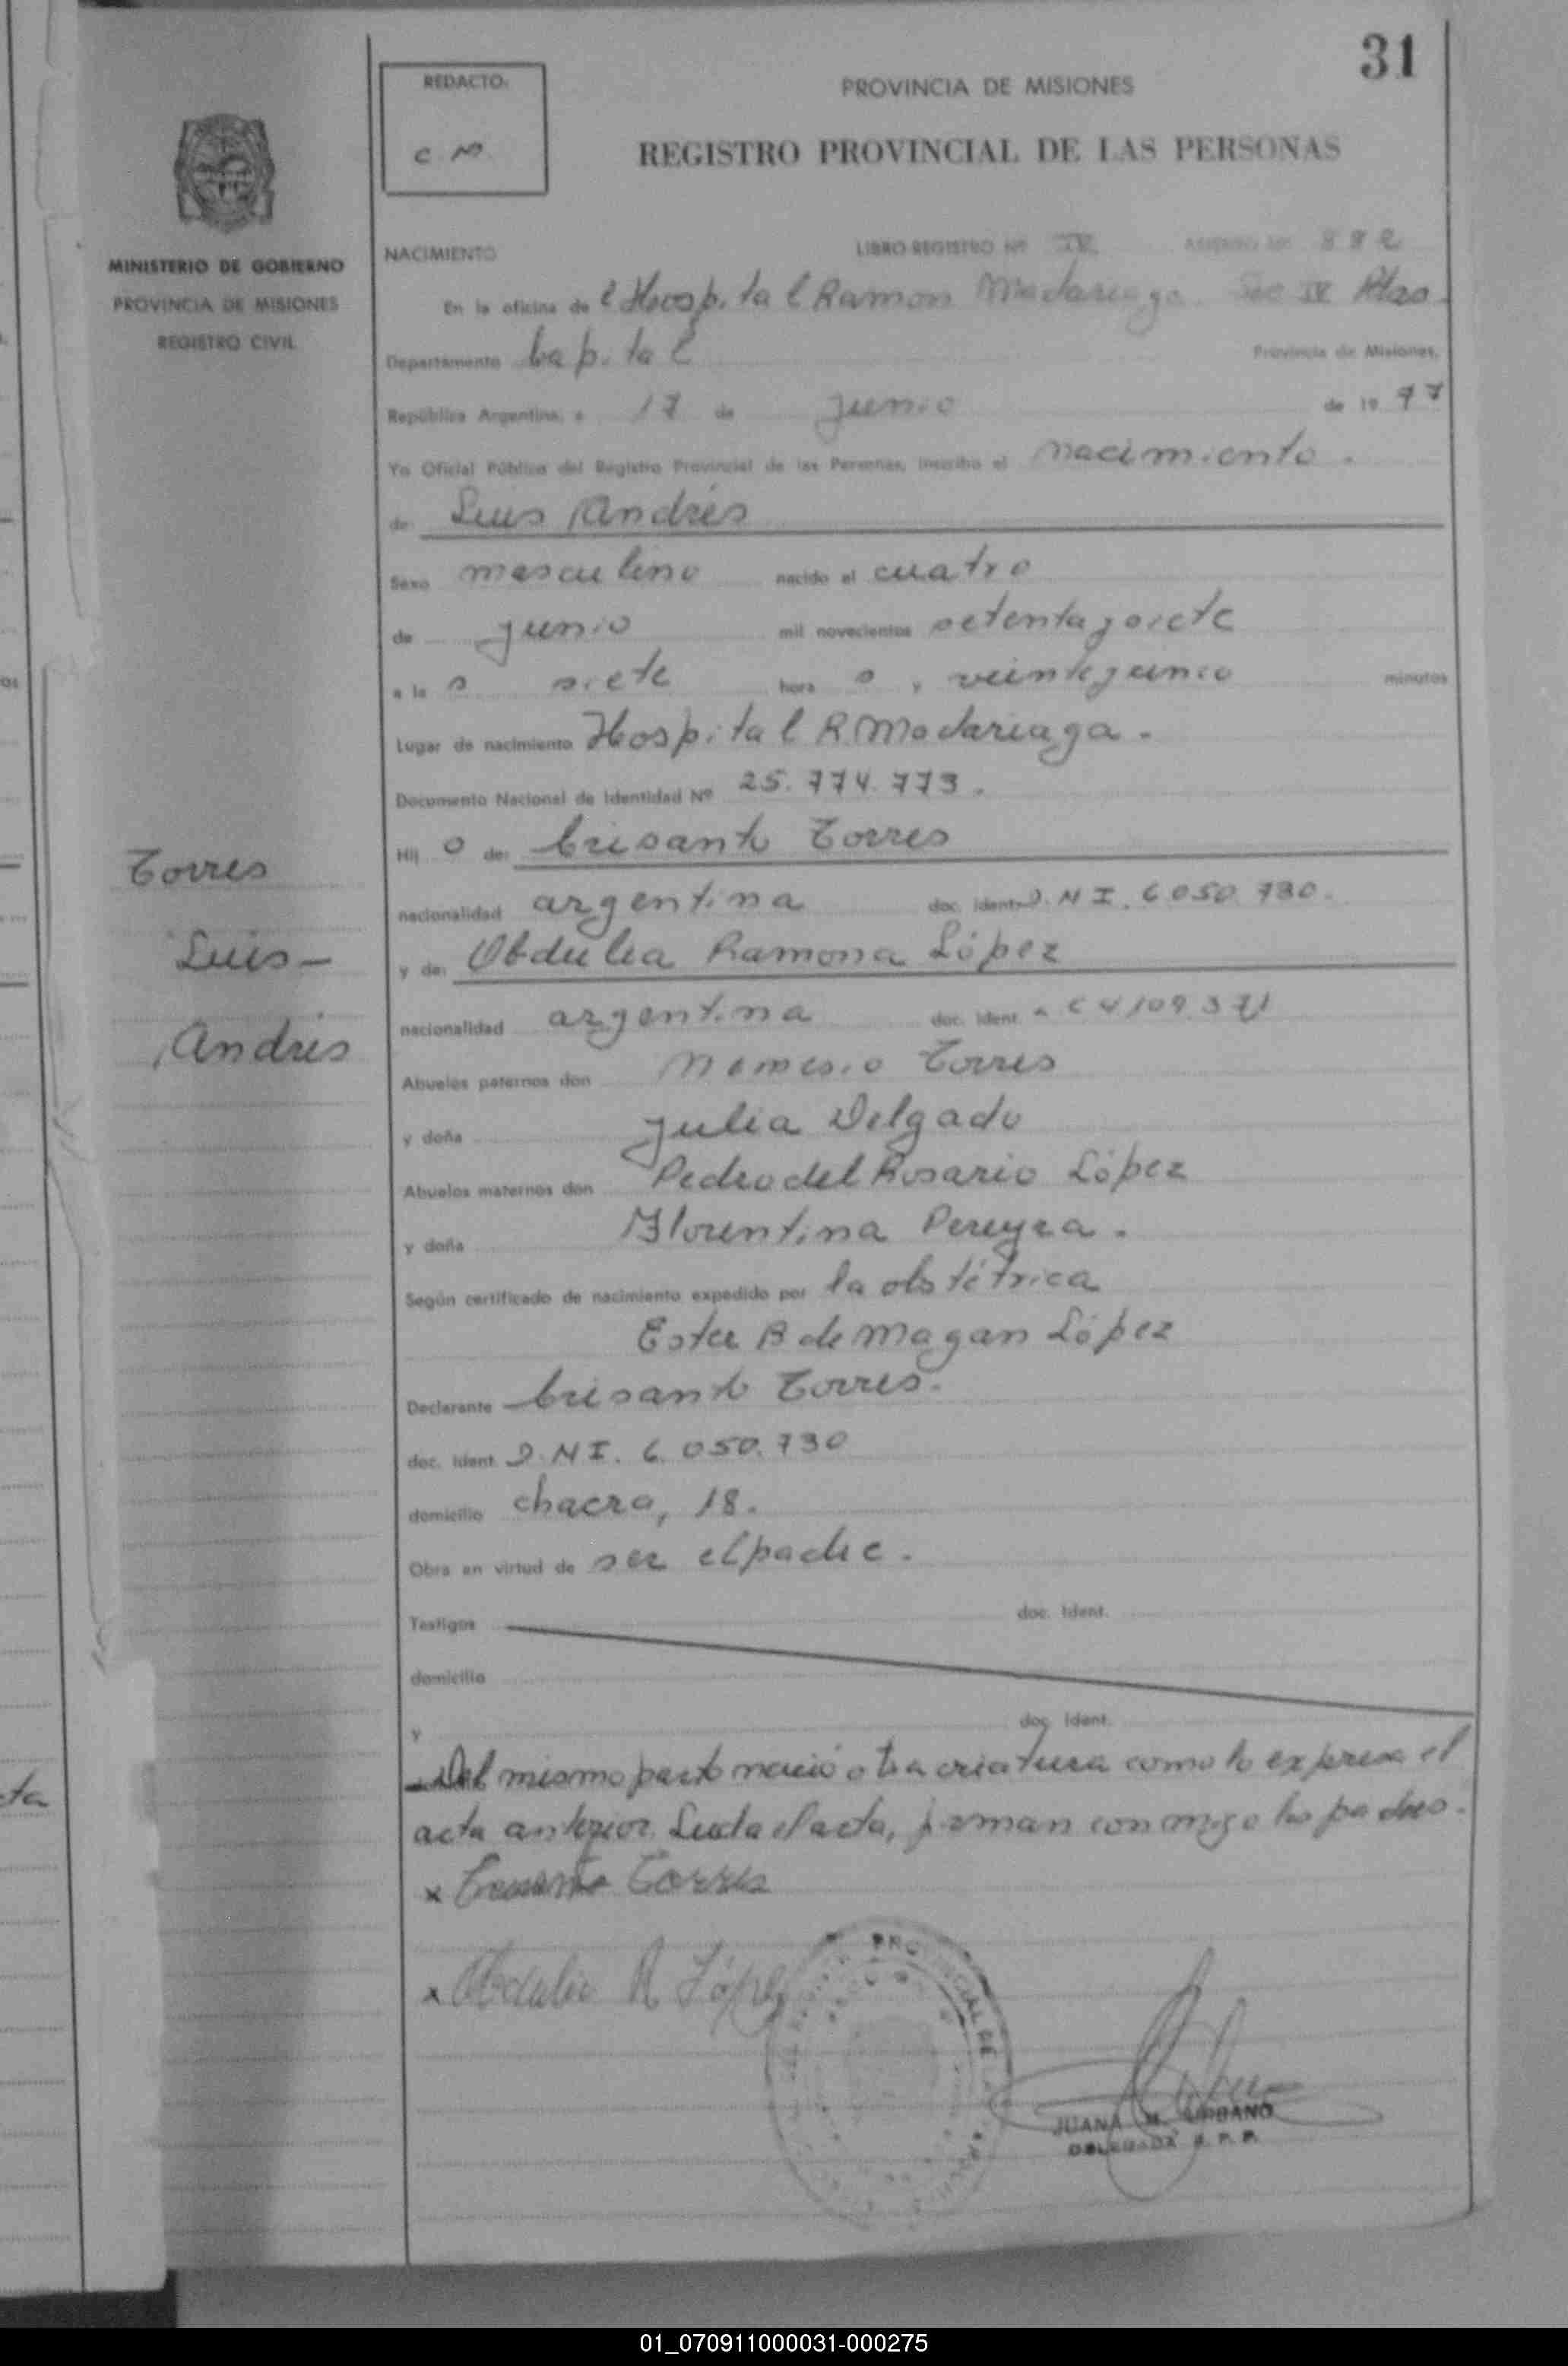 31
REDACTO:
C M.
PROVINCIA DE MISIONES
REGISTRO PROVINCIAL DE LAS PERSONAS
MINISTERIO DE GOBIERNO
PROVINCIA DE MISIONES
REGISTRO CIVIL
Torres
Luis-
Andrés
NACIMIENTO LIBRO REGISTRO Nº IV ASIENTO Nº 882
En la oficina de l Hospital Ramon Madariaga Sec IV Pdas.
Departamento Capital Provincia de Misiones,
República Argentina, a 17 de junio de 19 77
Yo Oficial Público del Registro Provincial de las Personas, inscribo el nacimiento.
de Luis Andrés
Sexo masculino nacido el cuatro
de junio mil novecientos setenta y siete
a la s siete hora s y veinticinco minutos
Lugar de nacimiento Hospital R. Madariaga.
Documento Nacional de Identidad Nº 25.774.773.
Hij o de: Crisanto Torres
nacionalidad argentina doc. ident. D.N I. 6 050 730.
y de: Obdulia Ramona López
nacionalidad argentina doc. ident. C 4109 371
Abuelos paternos don Nemesio Torres
y doña Julia Delgado
Abuelos maternos don Pedro del Rosario López
y doña Florentina Pereyra.
Según certificado de nacimiento expedido por la obstétrica
Ester B de Magan López
Declarante Crisanto Torres.
doc. ident. D.N I. 6.050.730
domicilio chacra, 18.
Obra en virtud de ser el padre.
Testigos doc. ident.
domicilio
y doc. ident.
-Del mismo parto nació otra criatura como lo expresa el
acta anterior. Leída el acta, firman conmigo los padres.
x Crisanto Torres
x Obdulia R López
PROVINCIAL DE
JUANA M. URBANO
DELEGADA R. P. P.
01_070911000031-000275